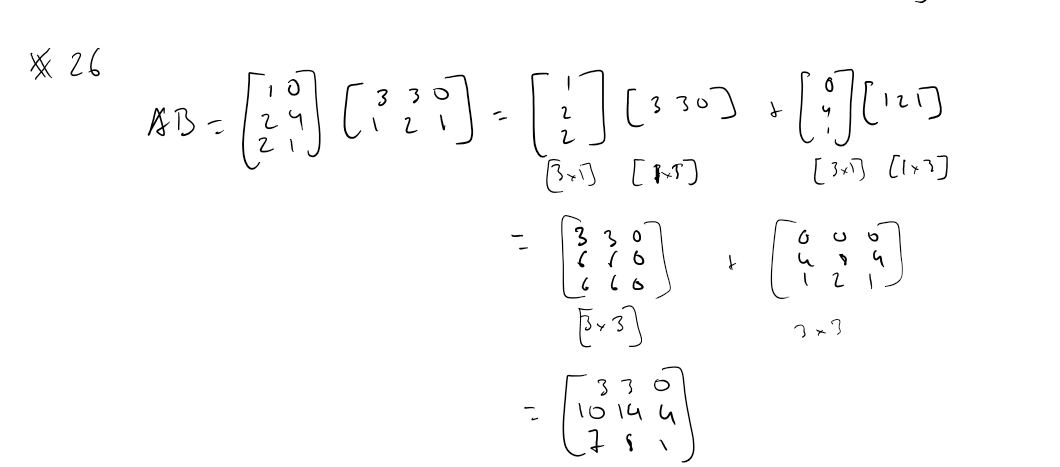 ※ 26
AB = [1 0; 2 4; 2 1] [3 3 0; 1 2 1] = [1; 2; 2] [3 3 0] + [0; 4; 1] [1 2 1]
[3×1] [1×3] [3×1] [1×3]
= [3 3 0; 6 6 0; 6 6 0] + [0 0 0; 4 8 4; 1 2 1]
[3×3] 3×3
= [3 3 0; 10 14 4; 7 8 1]